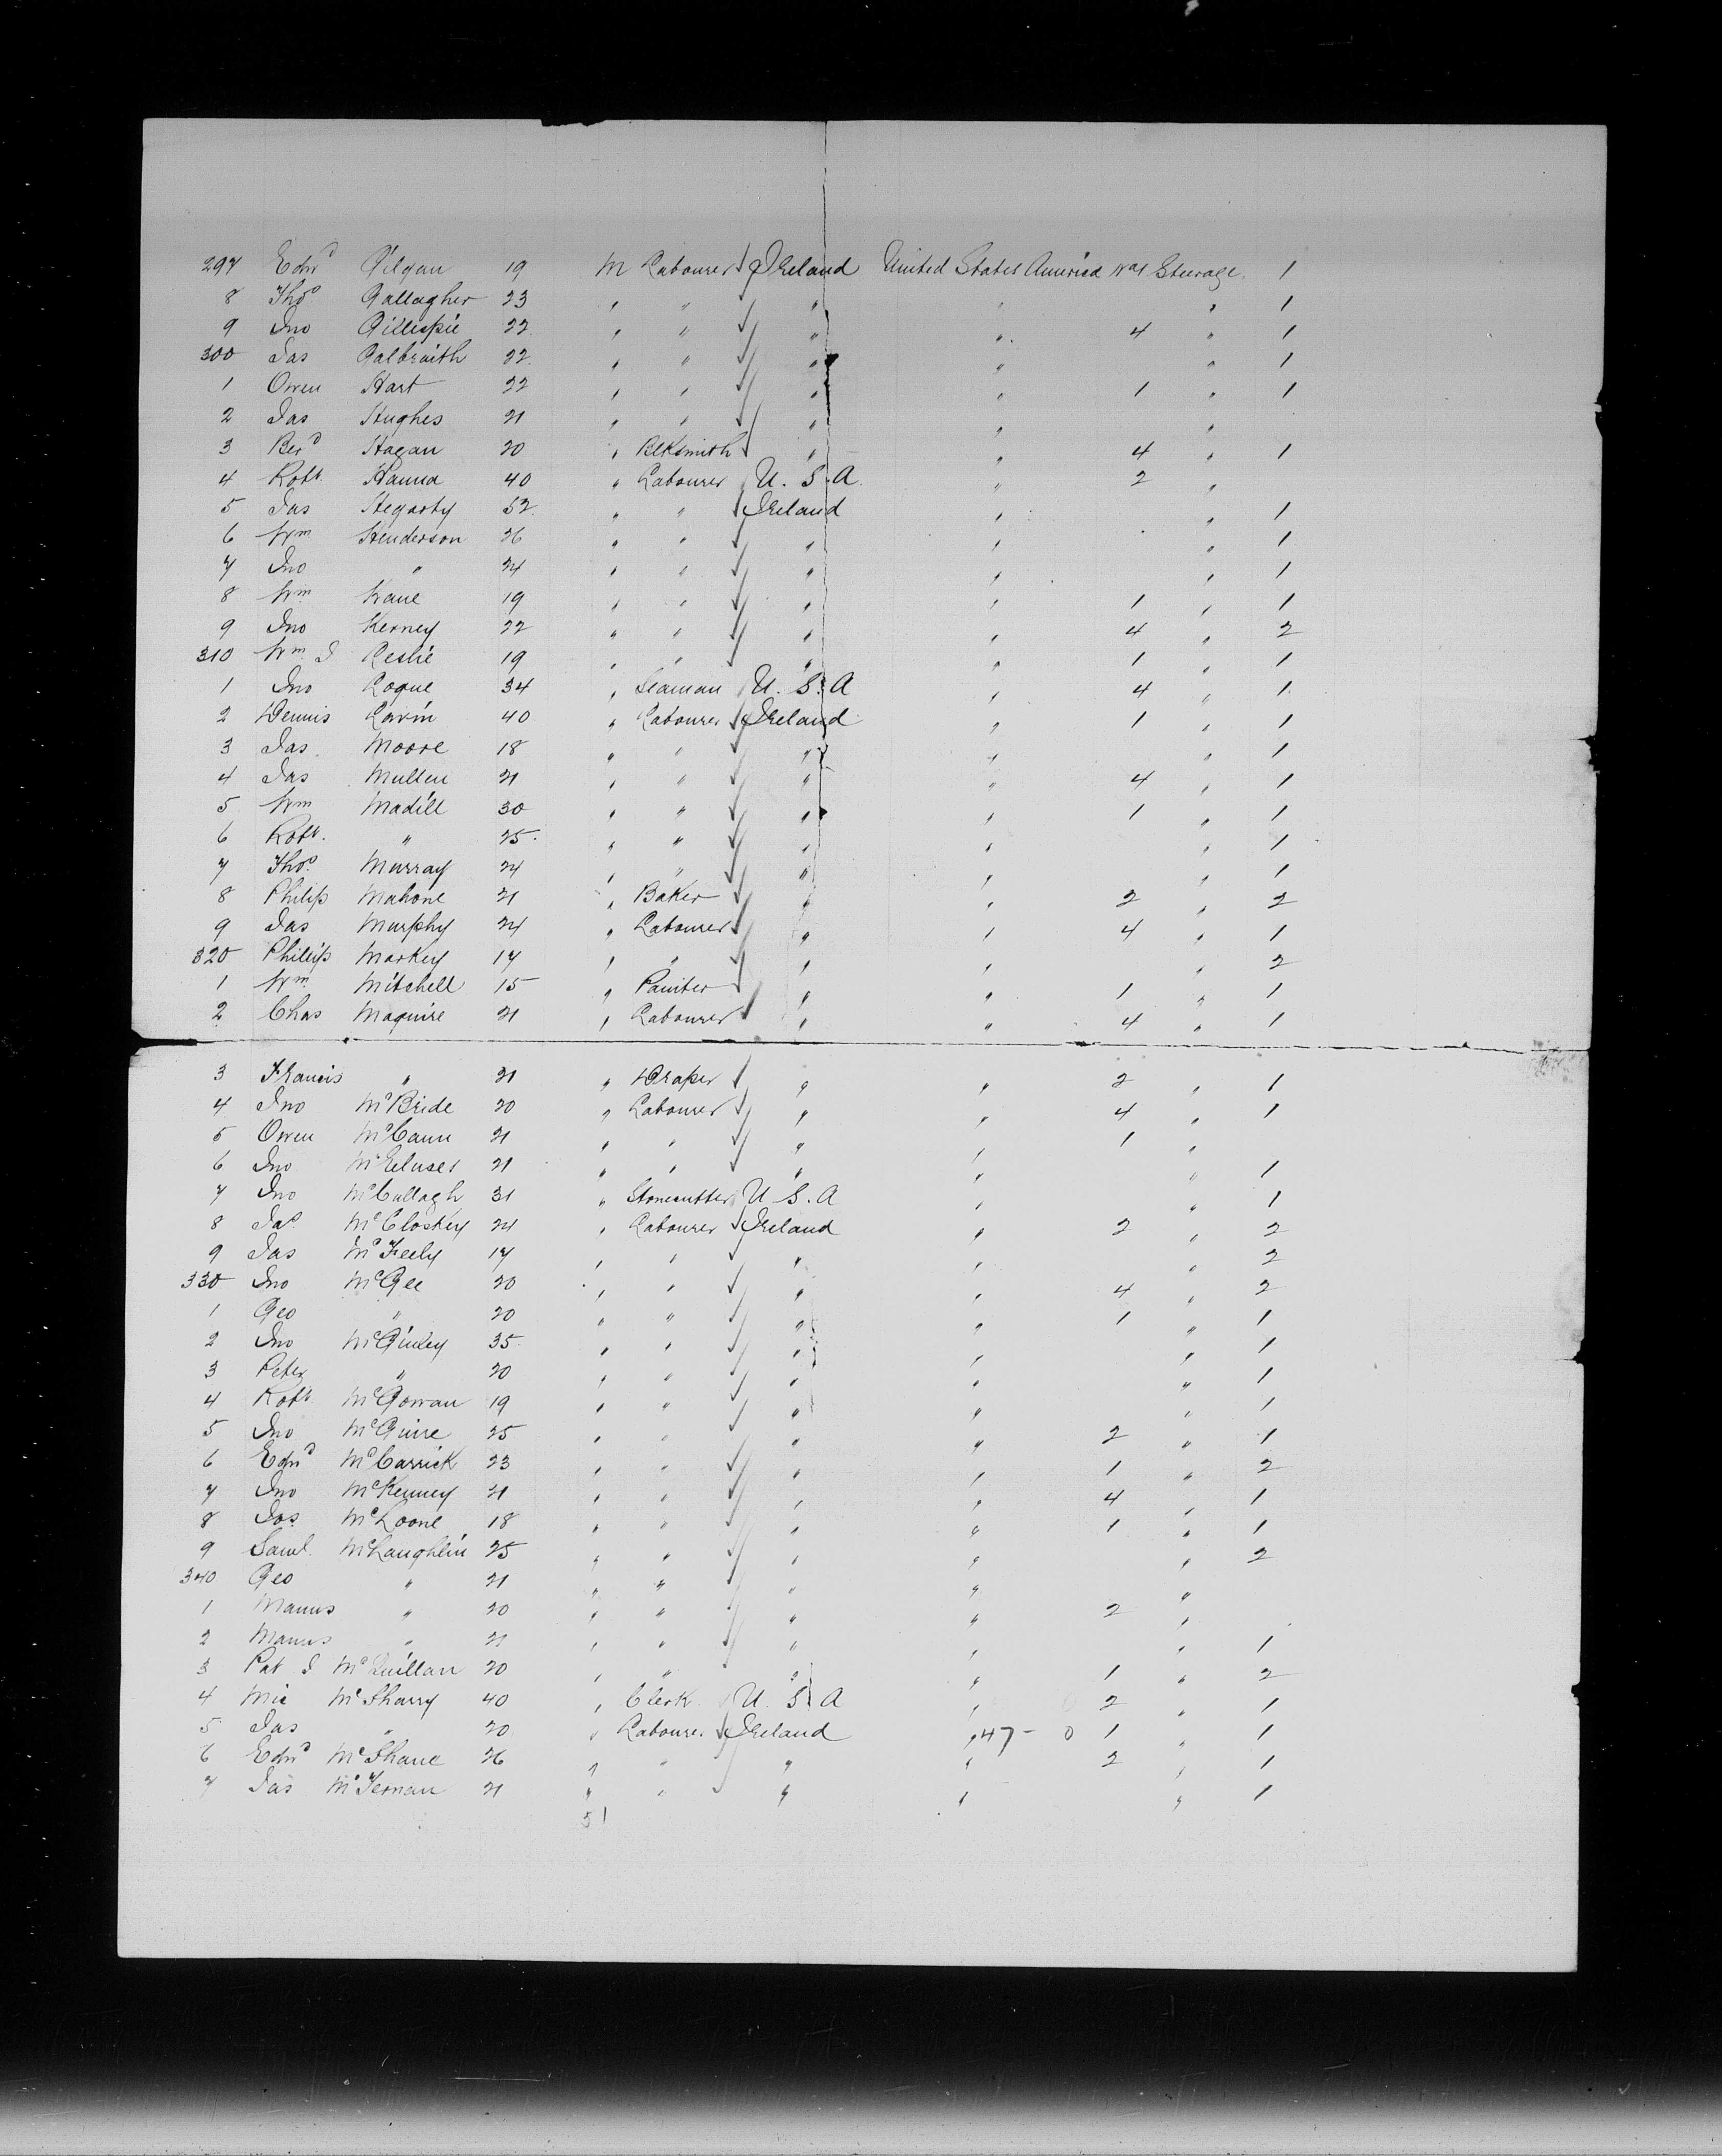 297 Edwd Gilgan 19 M Labourer Ireland United States America No 1 Steerage 1
8 Thos Gallagher 23 " " " " " 1
9 Jno Gillispie 22 " " " " 4 " 1
300 Jas Galbraith 22 " " " " " 1
1 Owen Hart 22 " " " " 1 " 1
2 Jas Hughes 21 " " " " "
3 Berd Hagan 20 " Blksmith " " 4 " 1
4 Robt Hanna 40 " Labourer U.S.A. " 2 "
5 Jas Hegarty 52 " " Ireland " " 1
6 Wm Henderson 26 " " " " " 1
7 Jno " 24 " " " " " 1
8 Wm Kane 19 " " " " 1 " 1
9 Jno Kerney 22 " " " " 4 " 2
310 Wm J Leslie 19 " " " " 1 " 1
1 Jno Logue 34 " Seaman U.S.A " 4 " 1
2 Dennis Lavin 40 " Labourer Ireland " 1 " 1
3 Jas Moore 18 " " " " " 1
4 Jas Mullen 21 " " " " 4 " 1
5 Wm Madill 30 " " " " 1 " 1
6 Robt. " 25 " " " " " 1
7 Thos Murray 24 " " " " " 1
8 Philip Mahone 21 " Baker " " 2 " 2
9 Jas Murphy 24 " Labourer " " 4 " 1
320 Philip Markey 17 " " " " " 2
1 Wm Mitchell 15 " Painter " " 1 " 1
2 Chas Maguire 21 " Labourer " " 4 " 1
3 Francis " 21 " Draper " " 2 " 1
4 Jno McBride 20 " Labourer " " 4 " 1
5 Owen McCann 21 " " " " 1 "
6 Jno 21 " " " " " 1
7 Jno McCullagh 31 " Stonecutter U.S.A " " 1
8 Jas McCloskey 24 " Labourer Ireland " 2 " 2
9 Jas McFeely 17 " " " " " 2
330 Jno McGee 20 " " " " 4 " 2
1 Geo " 20 " " " " 1 " 1
2 Jno McGinley 35 " " " " " 1
3 Peter " 20 " " " " " 1
4 Robt McGowan 19 " " " " " 1
5 Jno McGuire 25 " " " " 2 " 1
6 Edwd McCarrick 23 " " " " 1 " 2
7 Jno McKenney 21 " " " " 4 " 1
8 Jos McLoone 18 " " " " 1 " 1
9 Saml. McLaughlin 25 " " " " " 2
340 Geo " 21 " " " " "
1 Manus " 20 " " " " 2 "
2 Manus " 21 " " " " " 1
3 Pat J McQuillan 20 " " " " 1 " 2
4 Mic McSharry 40 " Clerk U.S.A " 2 " 1
5 Jas " 20 " Labourer Ireland " 47 - 0 1 " 1
6 Edwd McShane 26 " " " " 2 " 1
7 Jas McTernan 21 " " " " " 1
51